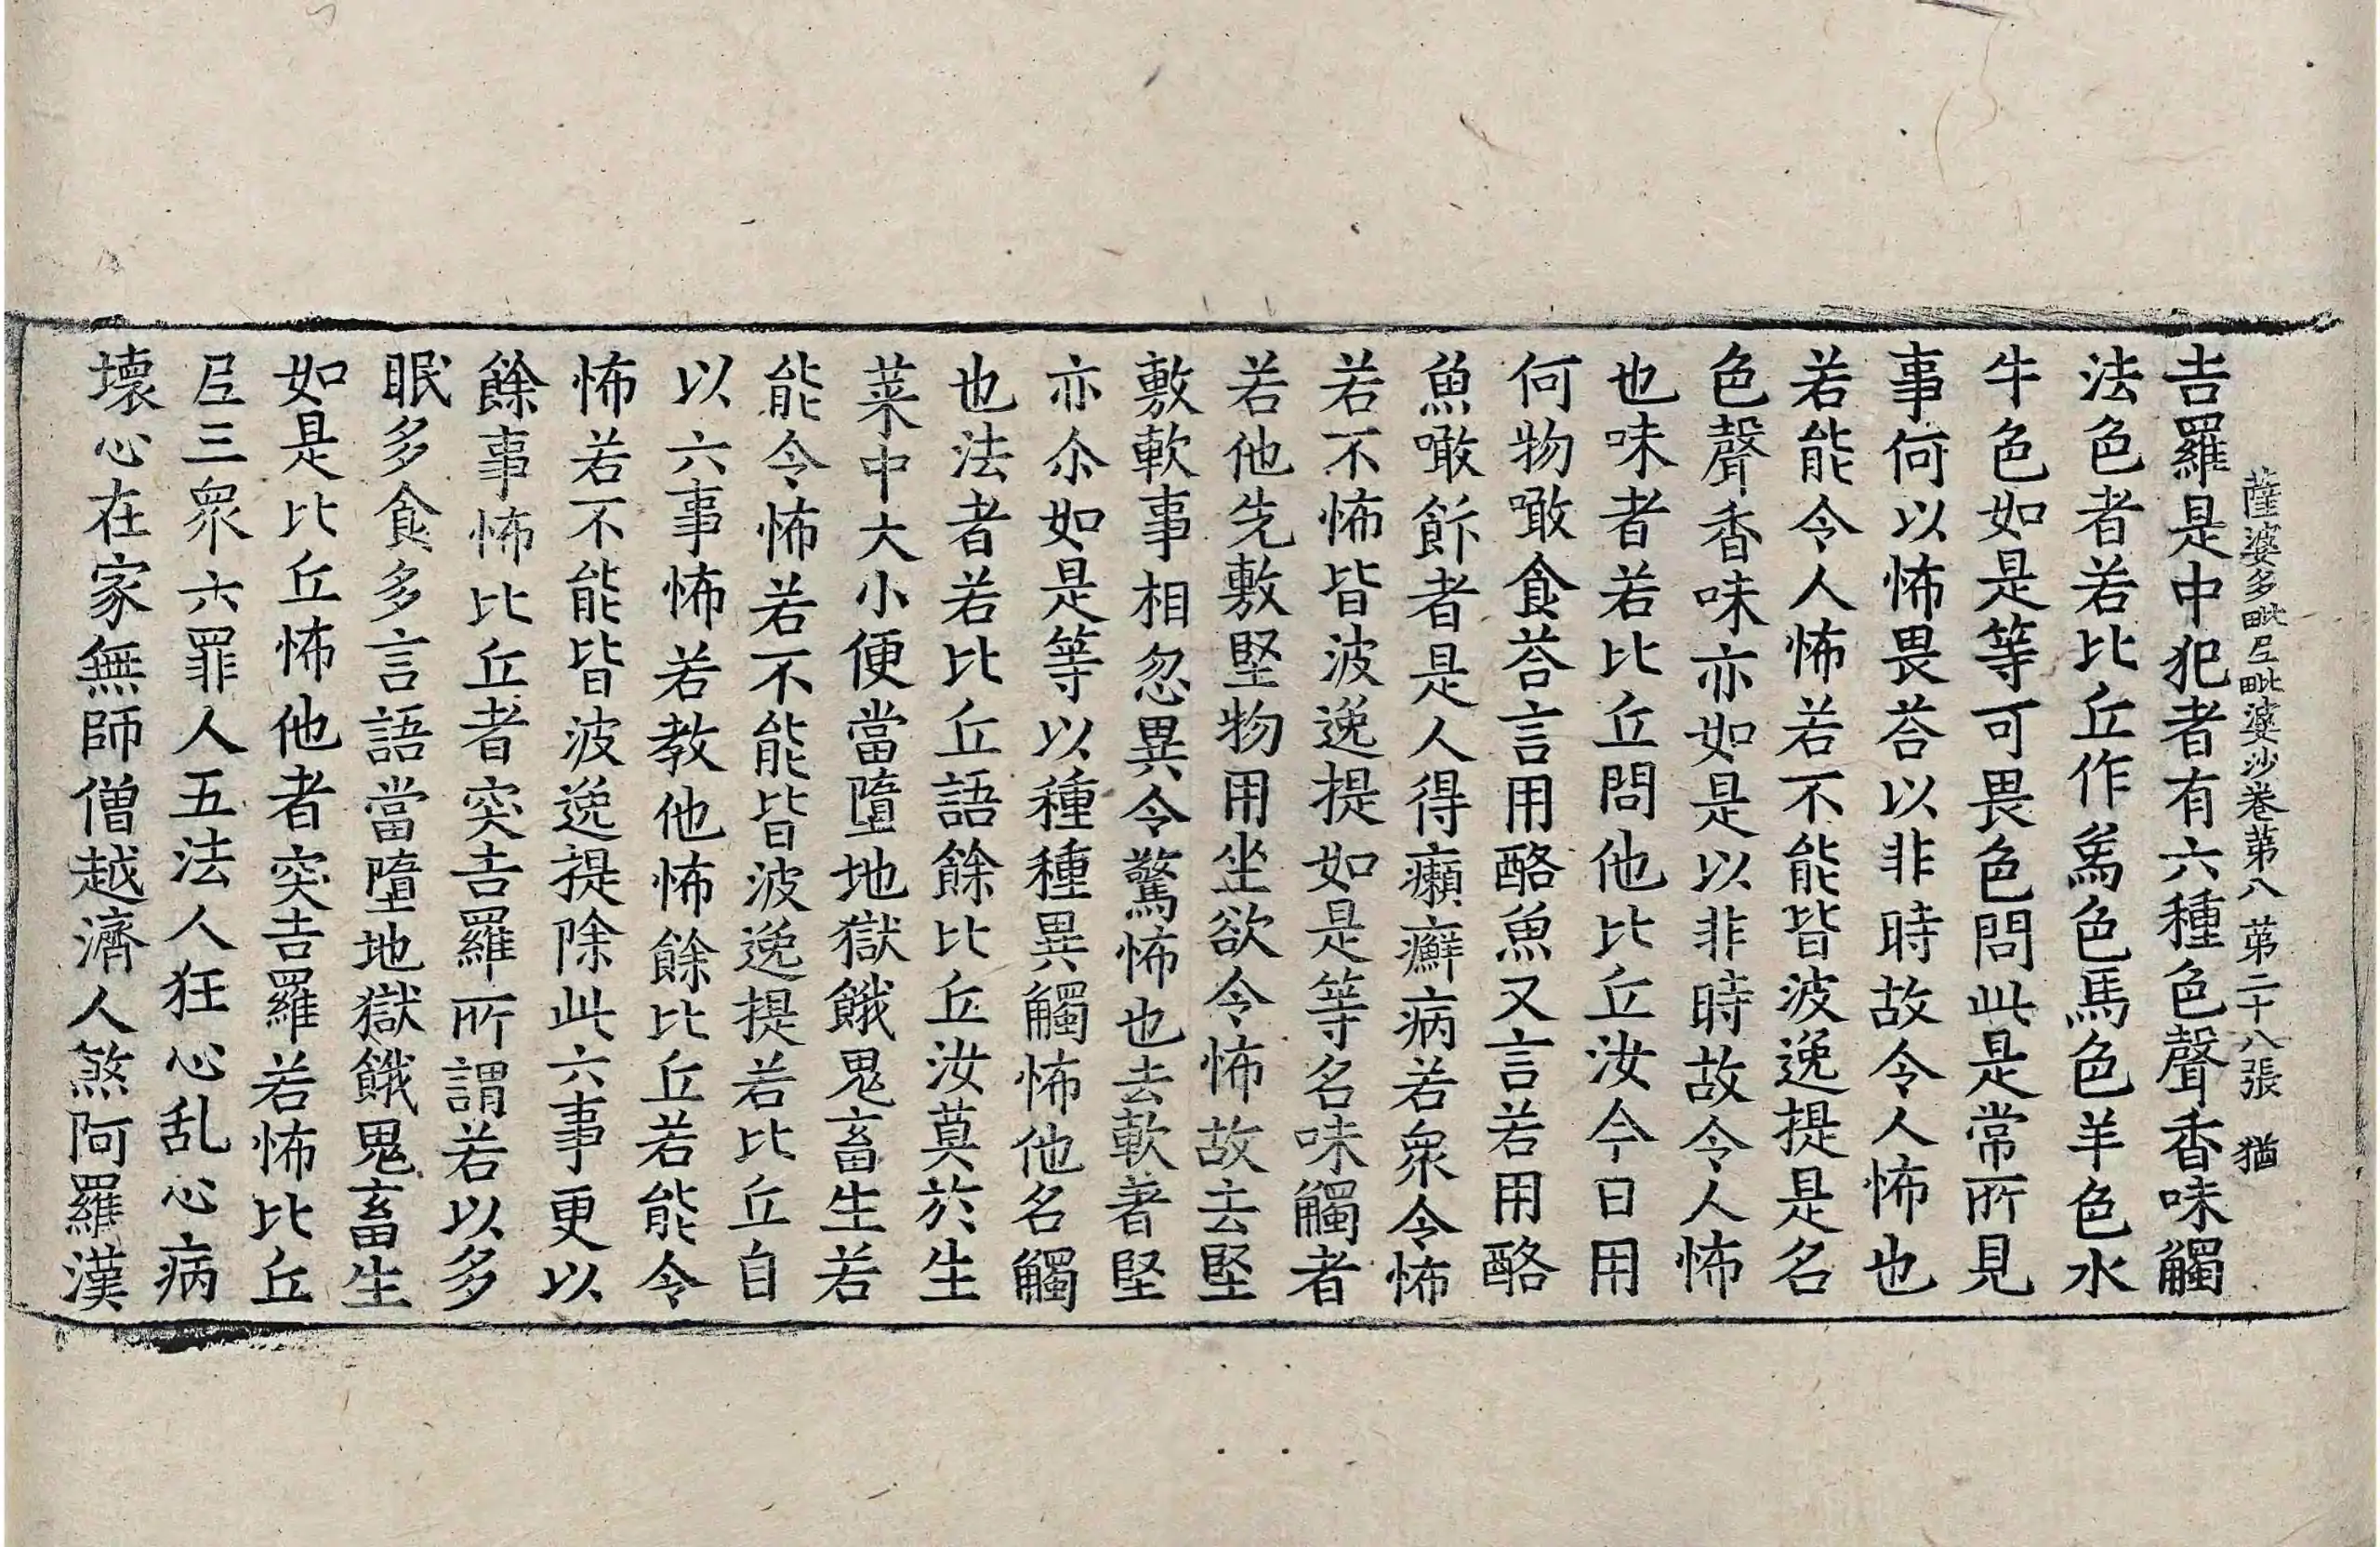 薩婆多毗尼毗婆沙卷第八 第二十八張 猶
吉羅是中犯者有六種色聲香味觸
法色者若比丘作象色馬色羊色水
牛色如是等可畏色問此是常所見
事何以怖畏荅以非時故令人怖也
若能令人怖若不能皆波逸提是名
色聲香味亦如是以非時故令人怖
也味者若比丘問他比丘汝今日用
何物噉食荅言用酪魚又言若用酪
魚噉飰者是人得癩癬病若衆令怖
若不怖皆波逸提如是等名味觸者
若他先敷堅物用坐欲令怖故去堅
敷軟事相忽異令驚怖也去軟著堅
亦尒如是等以種種異觸怖他名觸
也法者若比丘語餘比丘汝莫於生
菜中大小便當墮地獄餓鬼畜生若
能令怖若不能皆波逸提若比丘自
以六事怖若教他怖餘比丘若能令
怖若不能皆波逸提除此六事更以
餘事怖比丘者突吉羅所謂若以多
眠多食多言語當墮地獄餓鬼畜生
如是比丘怖他者突吉羅若怖比丘
尼三衆六罪人五法人狂心乱心病
壞心在家無師僧越濟人煞阿羅漢